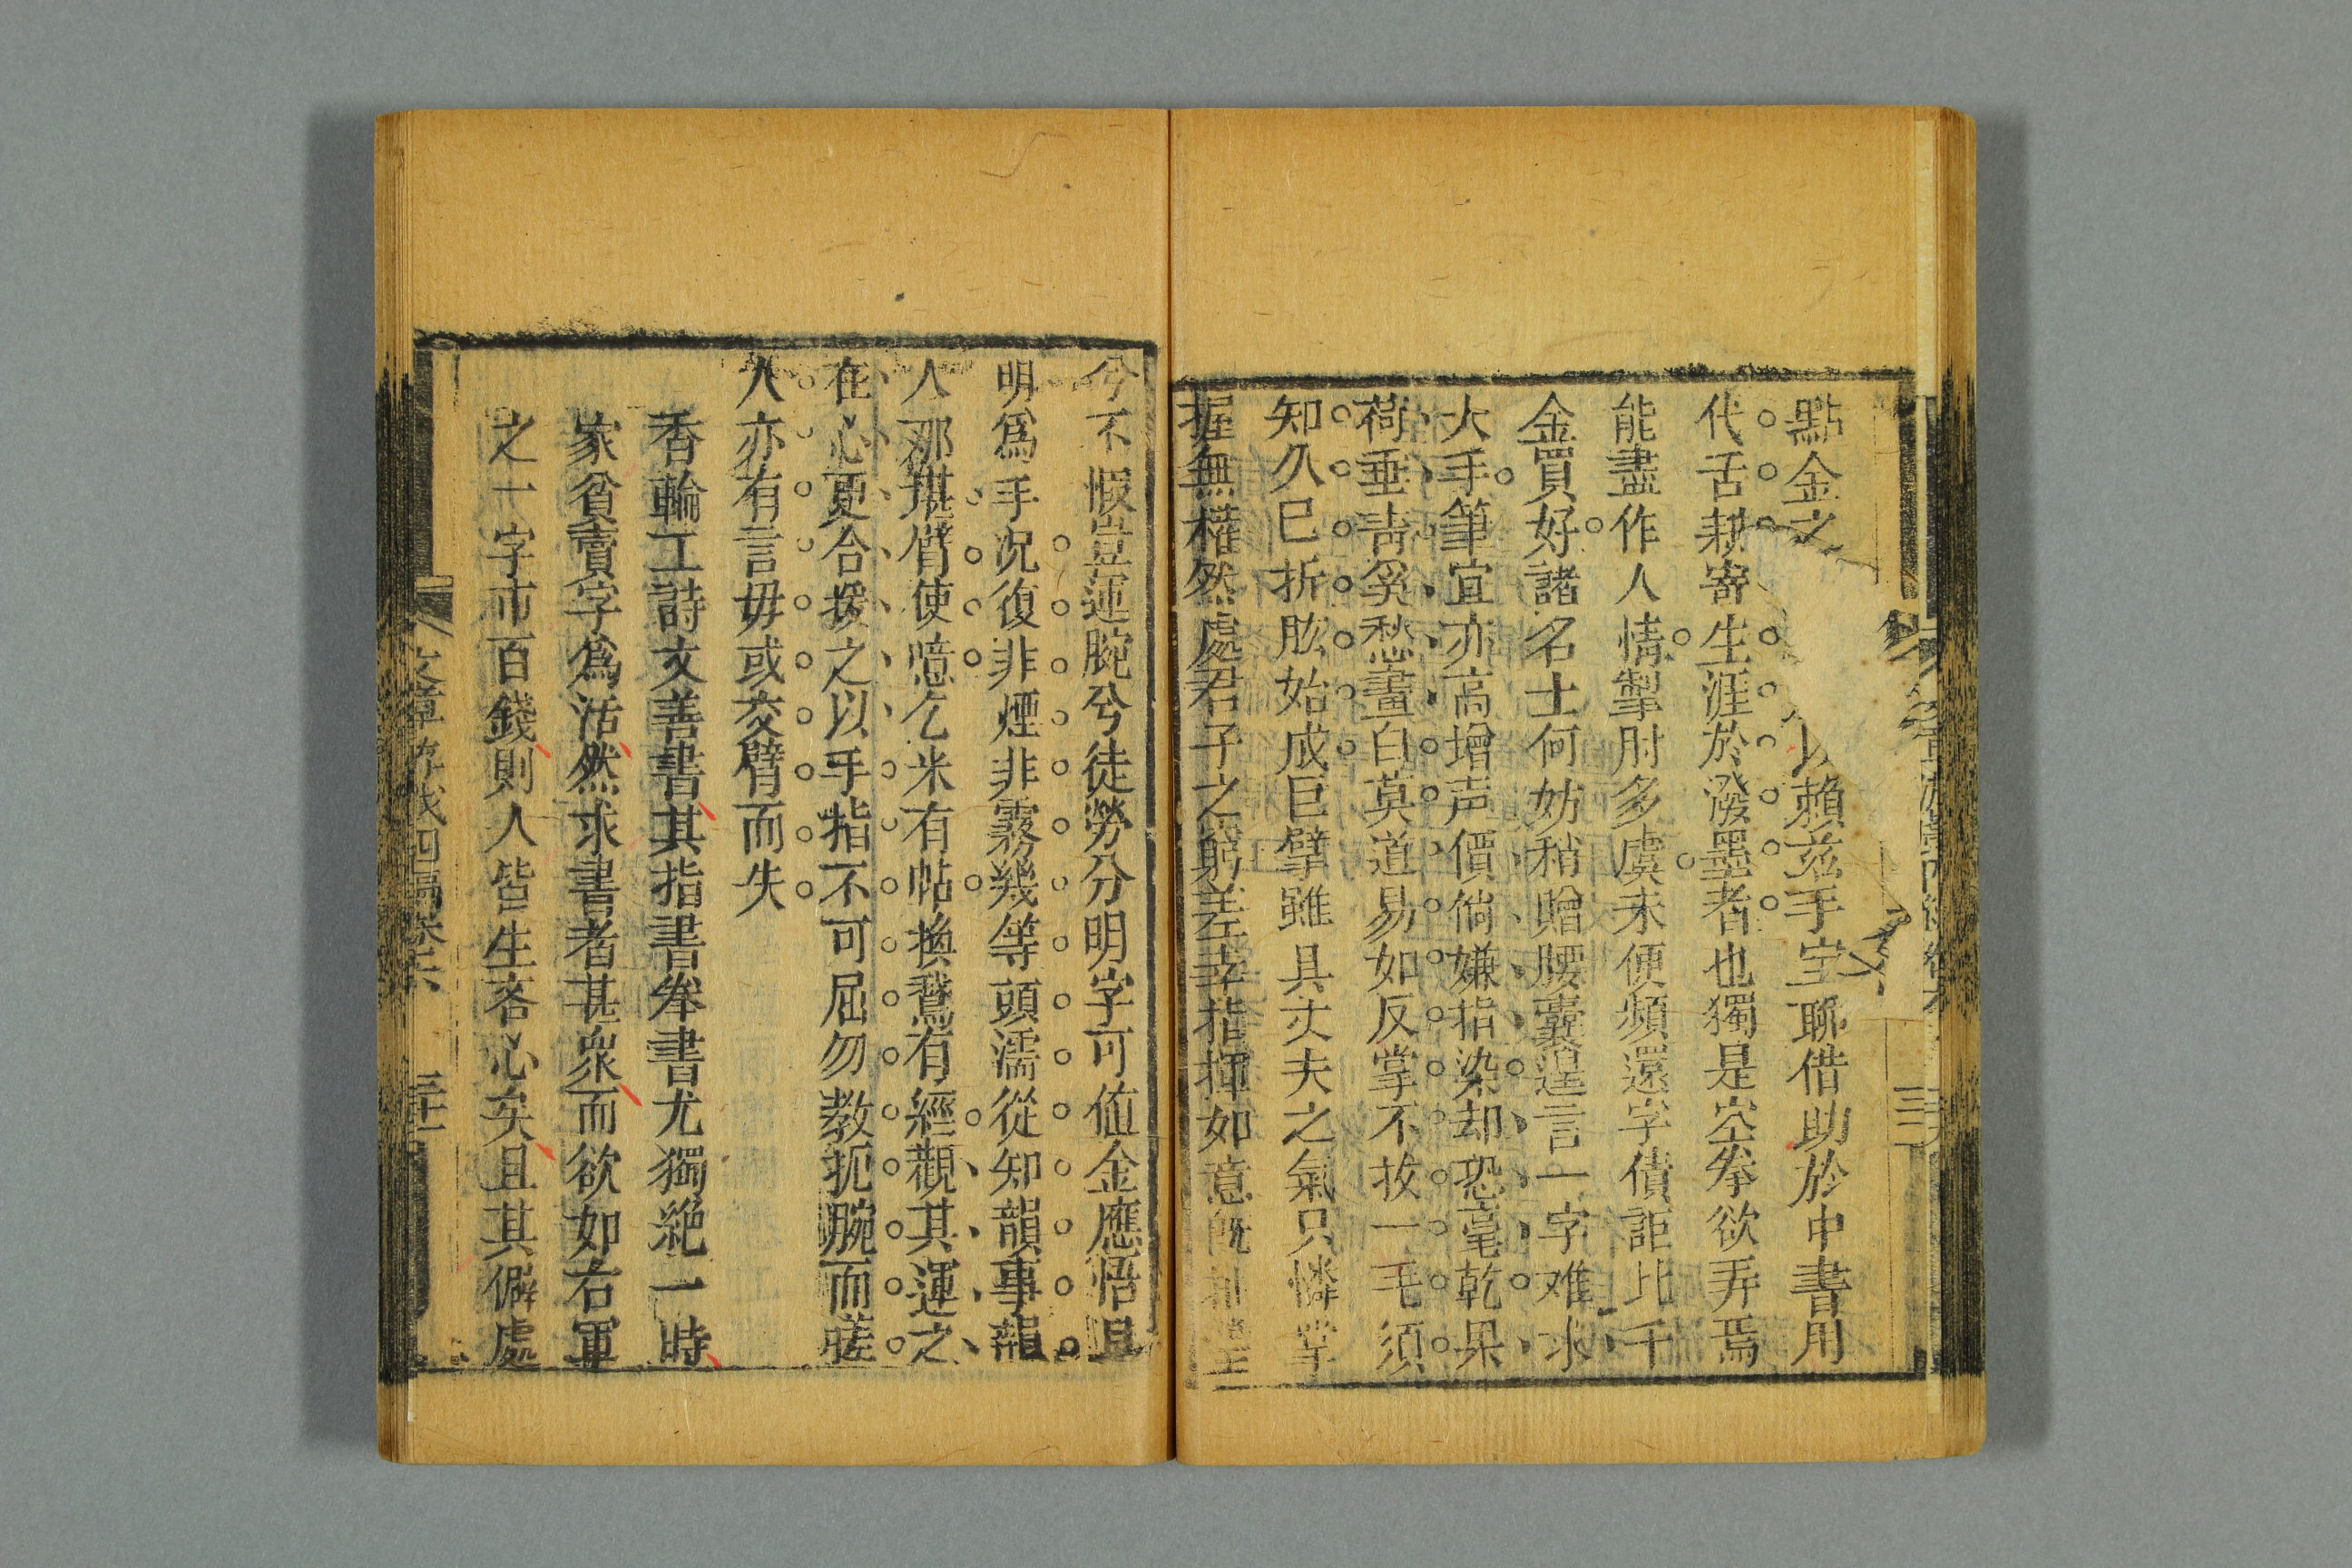 點金之賴茲手宝聊借助於中書用
代舌耕寄生涯於潑墨者也獨是空拳欲弄焉
能盡作人情掣肘多虞未便頻還字債詎比千
金買好諸名士何妨稍贈腰囊遑言一字难求
大手筆宜亦高增声價倘嫌指染却恐毫乾果
荷垂青奚愁畫白莫道易如反掌不拔一毛須
知久已折肱始成巨擘雖具丈夫之氣只憐掌
握無權然處君子之窮差幸指揮如意既
兮不暇豈運腕兮徒勞分明字可值金應悟且
明為手況復非煙非霧幾等頭濡從知韻事韻
人那堪臂使噫乞米有帖換鵞有經觀其運之
在心更合援之以手指不可屈勿教扼腕而嗟
人亦有言毋或交臂而失
香輪工詩文善書其指書拳書尤獨絕一時
家貧賣字為活然求書者甚眾而欲如右軍
之一字市百錢則人皆生吝心矣且其僻處
文章游戲四編卷六 三十一